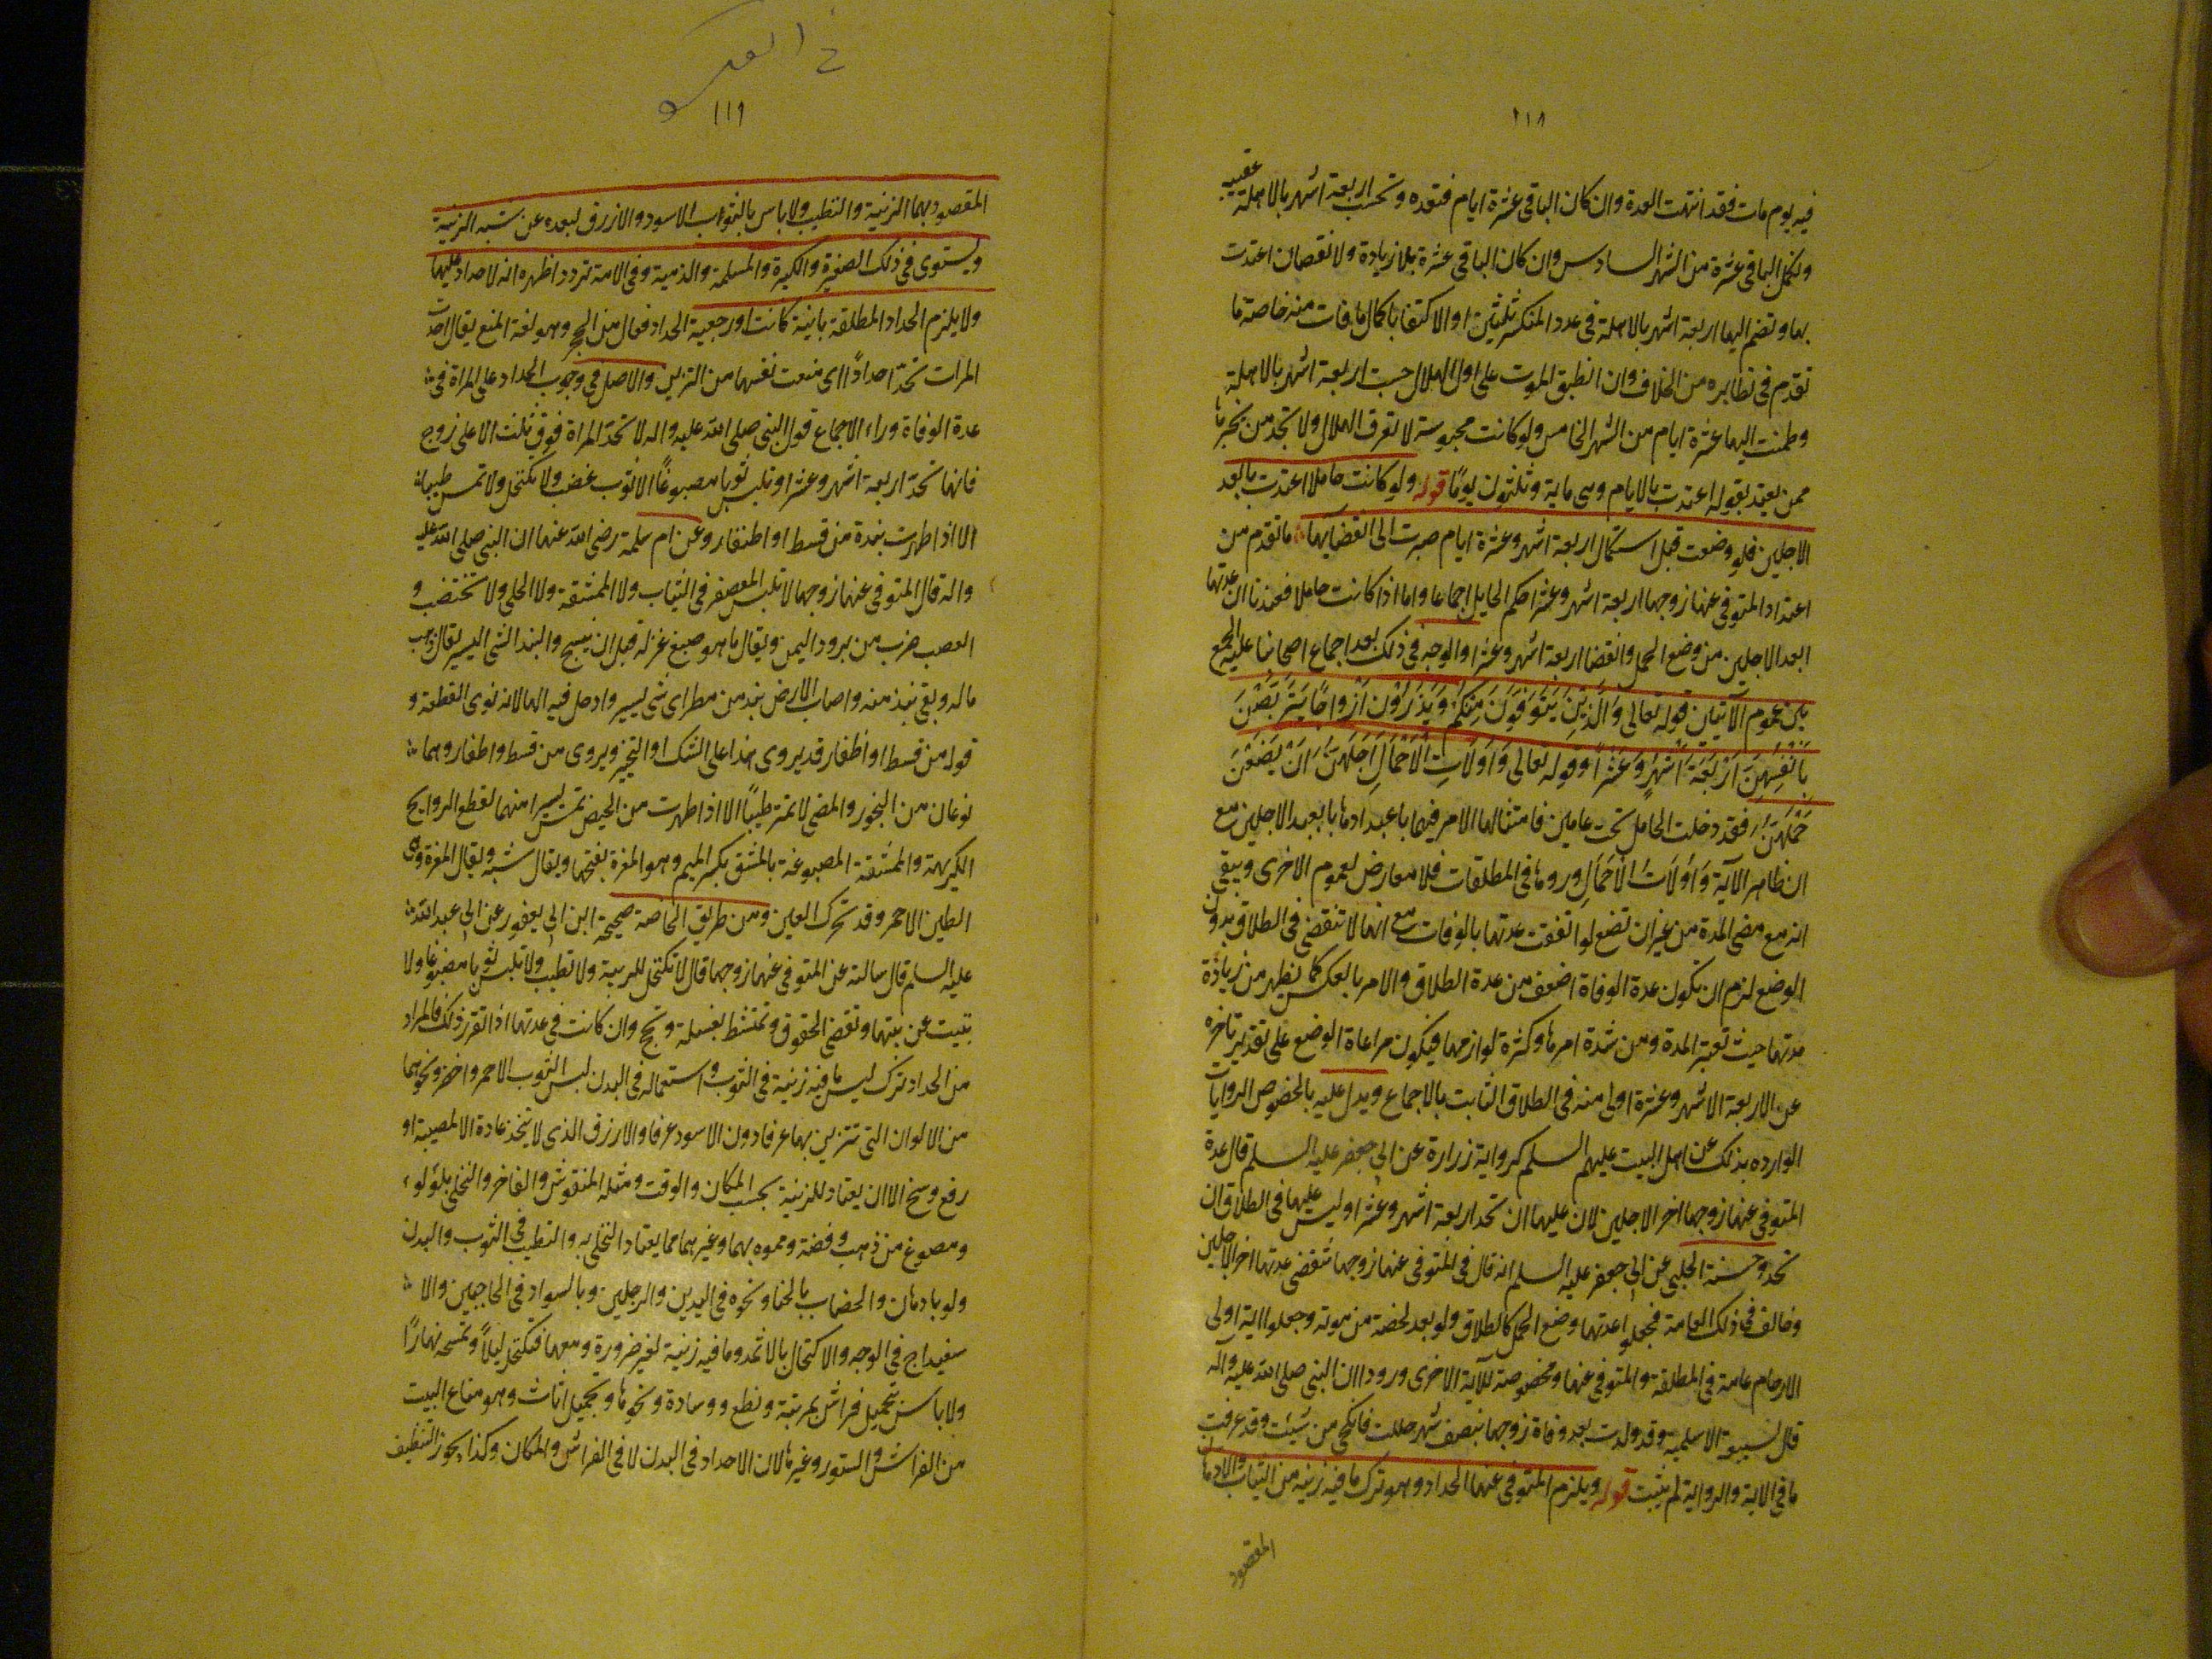 ١١٨
فيه يوم مات فقد انتهت العدة وان كان الباقى عشرة ايام فتعده وتحسب اربعة اشهر بالاهلة عقيبه
وتكمل الباقى عشرة من الشهر السادس وان كان الباقى عشرة بلا زيادة ولا نقصان اعتدت
بها وتضم اليها اربعة اشهر بالاهلة فى عدد المنكسر ثلثين او الاكتفا باكمال ما فات منه خاصة ما
تقدم فى نظايره من الخلاف وان انطبق الموت على اول الهلال حسبت اربعة اشهر بالاهلة
وضمت اليها عشرة ايام من الشهر الخامس ولو كانت محبوسة لا تعرف الهلال ولا تجد من يخبرها
ممن يعتد بقوله اعتدت بالايام وهى ماية وثلثون يومًا قوله ولو كانت حاملا اعتدت بابعد
الاجلين فلو وضعت قبل استكمال اربعة اشهر وعشرة ايام صبرت الى انقضايها ما تقدم من
اعتداد المتوفى عنها زوجها اربعة اشهر وعشرا حكم الحايل اجماعا واما اذا كانت حاملا فعندنا ان عدتها
ابعد الاجلين من وضع الحمل وانقضا اربعة اشهر وعشرا والوجه فى ذلك بعد اجماع اصحابنا عليه الجمع
بين عموم الآيتين قوله تعالى وَالَّذِينَ يَتَوَفَّوْنَ مِنْكُمْ وَيَذَرُوْنَ اَزْوَاجًا يَتَرَبَّصْنَ
بِاَنْفُسِهِنَّ اَرْبَعَةَ اَشْهُرٍ وَعَشْرًا وقوله تعالى وَاُولَاتُ الْاَحْمَالِ اَجَلُهُنَّ اَنْ يَضَعْنَ
حَمْلَهُنَّ فقد دخلت الحامل تحت عامين فامتثالها الامر فيهما باعتدادها بابعد الاجلين مع
ان ظاهر الآية وَاُولَاتُ الْاَحْمَالِ ورودها فى المطلقات فلا معارض لعموم الاخرى ويبقى
انه مع مضى المدة من غير ان تضع لو انقضت عدتها بالوفات مع انها لا تنقضى فى الطلاق بدون
الوضع لزم ان تكون عدة الوفاة اضعف من عدة الطلاق والامر بالعكس كما يظهر من زيادة
مدتها حيث تعتبر المدة ومن شدة امرها وكثرة لوازمها فيكون مراعاة الوضع على تقدير تاخره
عن الاربعة الاشهر وعشرة اولى منه فى الطلاق الثابت بالاجماع ويدل عليه بالخصوص الروايات
الوارده بذلك عن اهل البيت عليهم السلم كرواية زرارة عن ابى جعفر عليه السلم قال عدة
المتوفى عنها زوجها اخر الاجلين لان عليها ان تحد اربعة اشهر وعشرا وليس عليها فى الطلاق ان
تحد وحسنة الحلبى عن ابى جعفر عليه السلم انه قال فى المتوفى عنها زوجها تنقضى عدتها اخر الاجلين
وخالف فى ذلك العامة فجعلوا عدتها وضع الحمل كالطلاق ولو بعد لحضة من موته وجعلوا اية اولى
الارحام عامة فى المطلقة والمتوفى عنها ومخصوصة للآية الاخرى ورووا ان النبى صلى الله عليه وآله
قال لسبيعة الاسلمية وقد ولدت بعد وفاة زوجها بنصف شهر حللت فانكحى من شيئت وقد عرفت
ما فى الاية والرواية لم يثبت قوله ويلزم المتوفى عنها الحداد وهو ترك ما فيه زينة من الثياب والادهان
المقصود
١١٩
المقصود بهما الزينة والتطيب ولا باس بالثواب الاسود والازرق لبعده عن شبه الزينة
ويستوى فى ذلك الصغيرة والكبيرة والمسلمة والذمية وفى الامة تردد اظهره انه لا حداد عليها
ولا يلزم الحداد المطلقة باينة كانت او رجعية الحداد فعال من الحجر وهو لغة المنع يقال احدت
المرات تحد احدادًا اى منعت نفسها من التزين والاصل فى وجوب الحداد على المراة فى
عدة الوفاة وراء الاجماع قول النبى صلى الله عليه واله لا تحد المراة فوق ثلث الا على زوج
فانها تحد اربعة اشهر وعشرا وتلبس ثوبا مصبوغًا الا ثوب عضب ولا تكتحل ولا تمس طيبا
الا اذا طهرت بنبذة من قسط او اظفار وعن ام سلمة رضى الله عنها ان النبى صلى الله عليه
واله قال المتوفى عنها زوجها لا تلبس المعصفر فى الثياب ولا الممشقة ولا الحلى ولا تختضب و
العصب ضرب من برود اليمن ويقال ما هو صبغ غزله قبل ان ينسج والنبذ الشى اليسير يقال ذهب
ماله وبقى نبذ منه واصاب الارض نبذ من مطر اى شى يسير وادخل فيه الها لانه نوى القطعة و
قوله من قسط او اظفار قد يروى هذا على الشك او التخيير ويروى من قسط واظفار وهما
نوعان من البخور والمضى لا تمس طيبًا الا اذا طهرت من الحيض تمس يسيرا منهما لقطع الروايح
الكريهة والممشقة المصبوغة بالمشق بكسر الميم وهو المغرة بفتحها ويقال شبه ويقال المغرة وهى
الطين الاحمر وقد تحرك الغين ومن طريق الخاصة صحيحة ابن ابى يعفور عن ابى عبد الله
عليه السلم قال سالته عن المتوفى عنها زوجها قال لا تكتحل للزينة ولا تطيب ولا تلبس ثوبا مصبوغا ولا
تبيت عن بيتها وتقضى الحقوق وتمتشط بغسلة وتحج وان كانت فى عدتها اذا تقرر ذلك فالمراد
من الحداد ترك لبس ما فيه زينة فى الثوب واستعماله فى البدن لبس الثوب الاحمر واخضر ونحوهما
من الالوان التى تتزين بها عرفا دون الاسود عرفا والازرق الذى لا يتخذ عادة الا لمصيبة او
رفع وسخ الا ان يعتاد للزينة بحسب المكان والوقت ومثله المنقوش والفاخر والتحلى بلؤلوء
ومصوغ من ذهب وفضة ومموه بهما وغيرهما مما يعتاد التحلى به والتطيب فى الثوب والبدن
ولو بادهان والخضاب بالحنا ونحوه فى اليدين والرجلين وبالسواد فى الحاجبين والا
سفيداج فى الوجه والاكتحال بالاثمد وما فيه زينة لغير ضرورة ومعها فتكتحل ليلاً وتمسحه نهارًا
ولا باس بتجميل فراش بمرتبة ونطع ووسادة ونحوها وتجميل اثاث وهو متاع البيت
من الفراش والستور وغيرها لان الاحداد فى البدن لا فى الفراش والمكان وكذا يجوز التنظيف